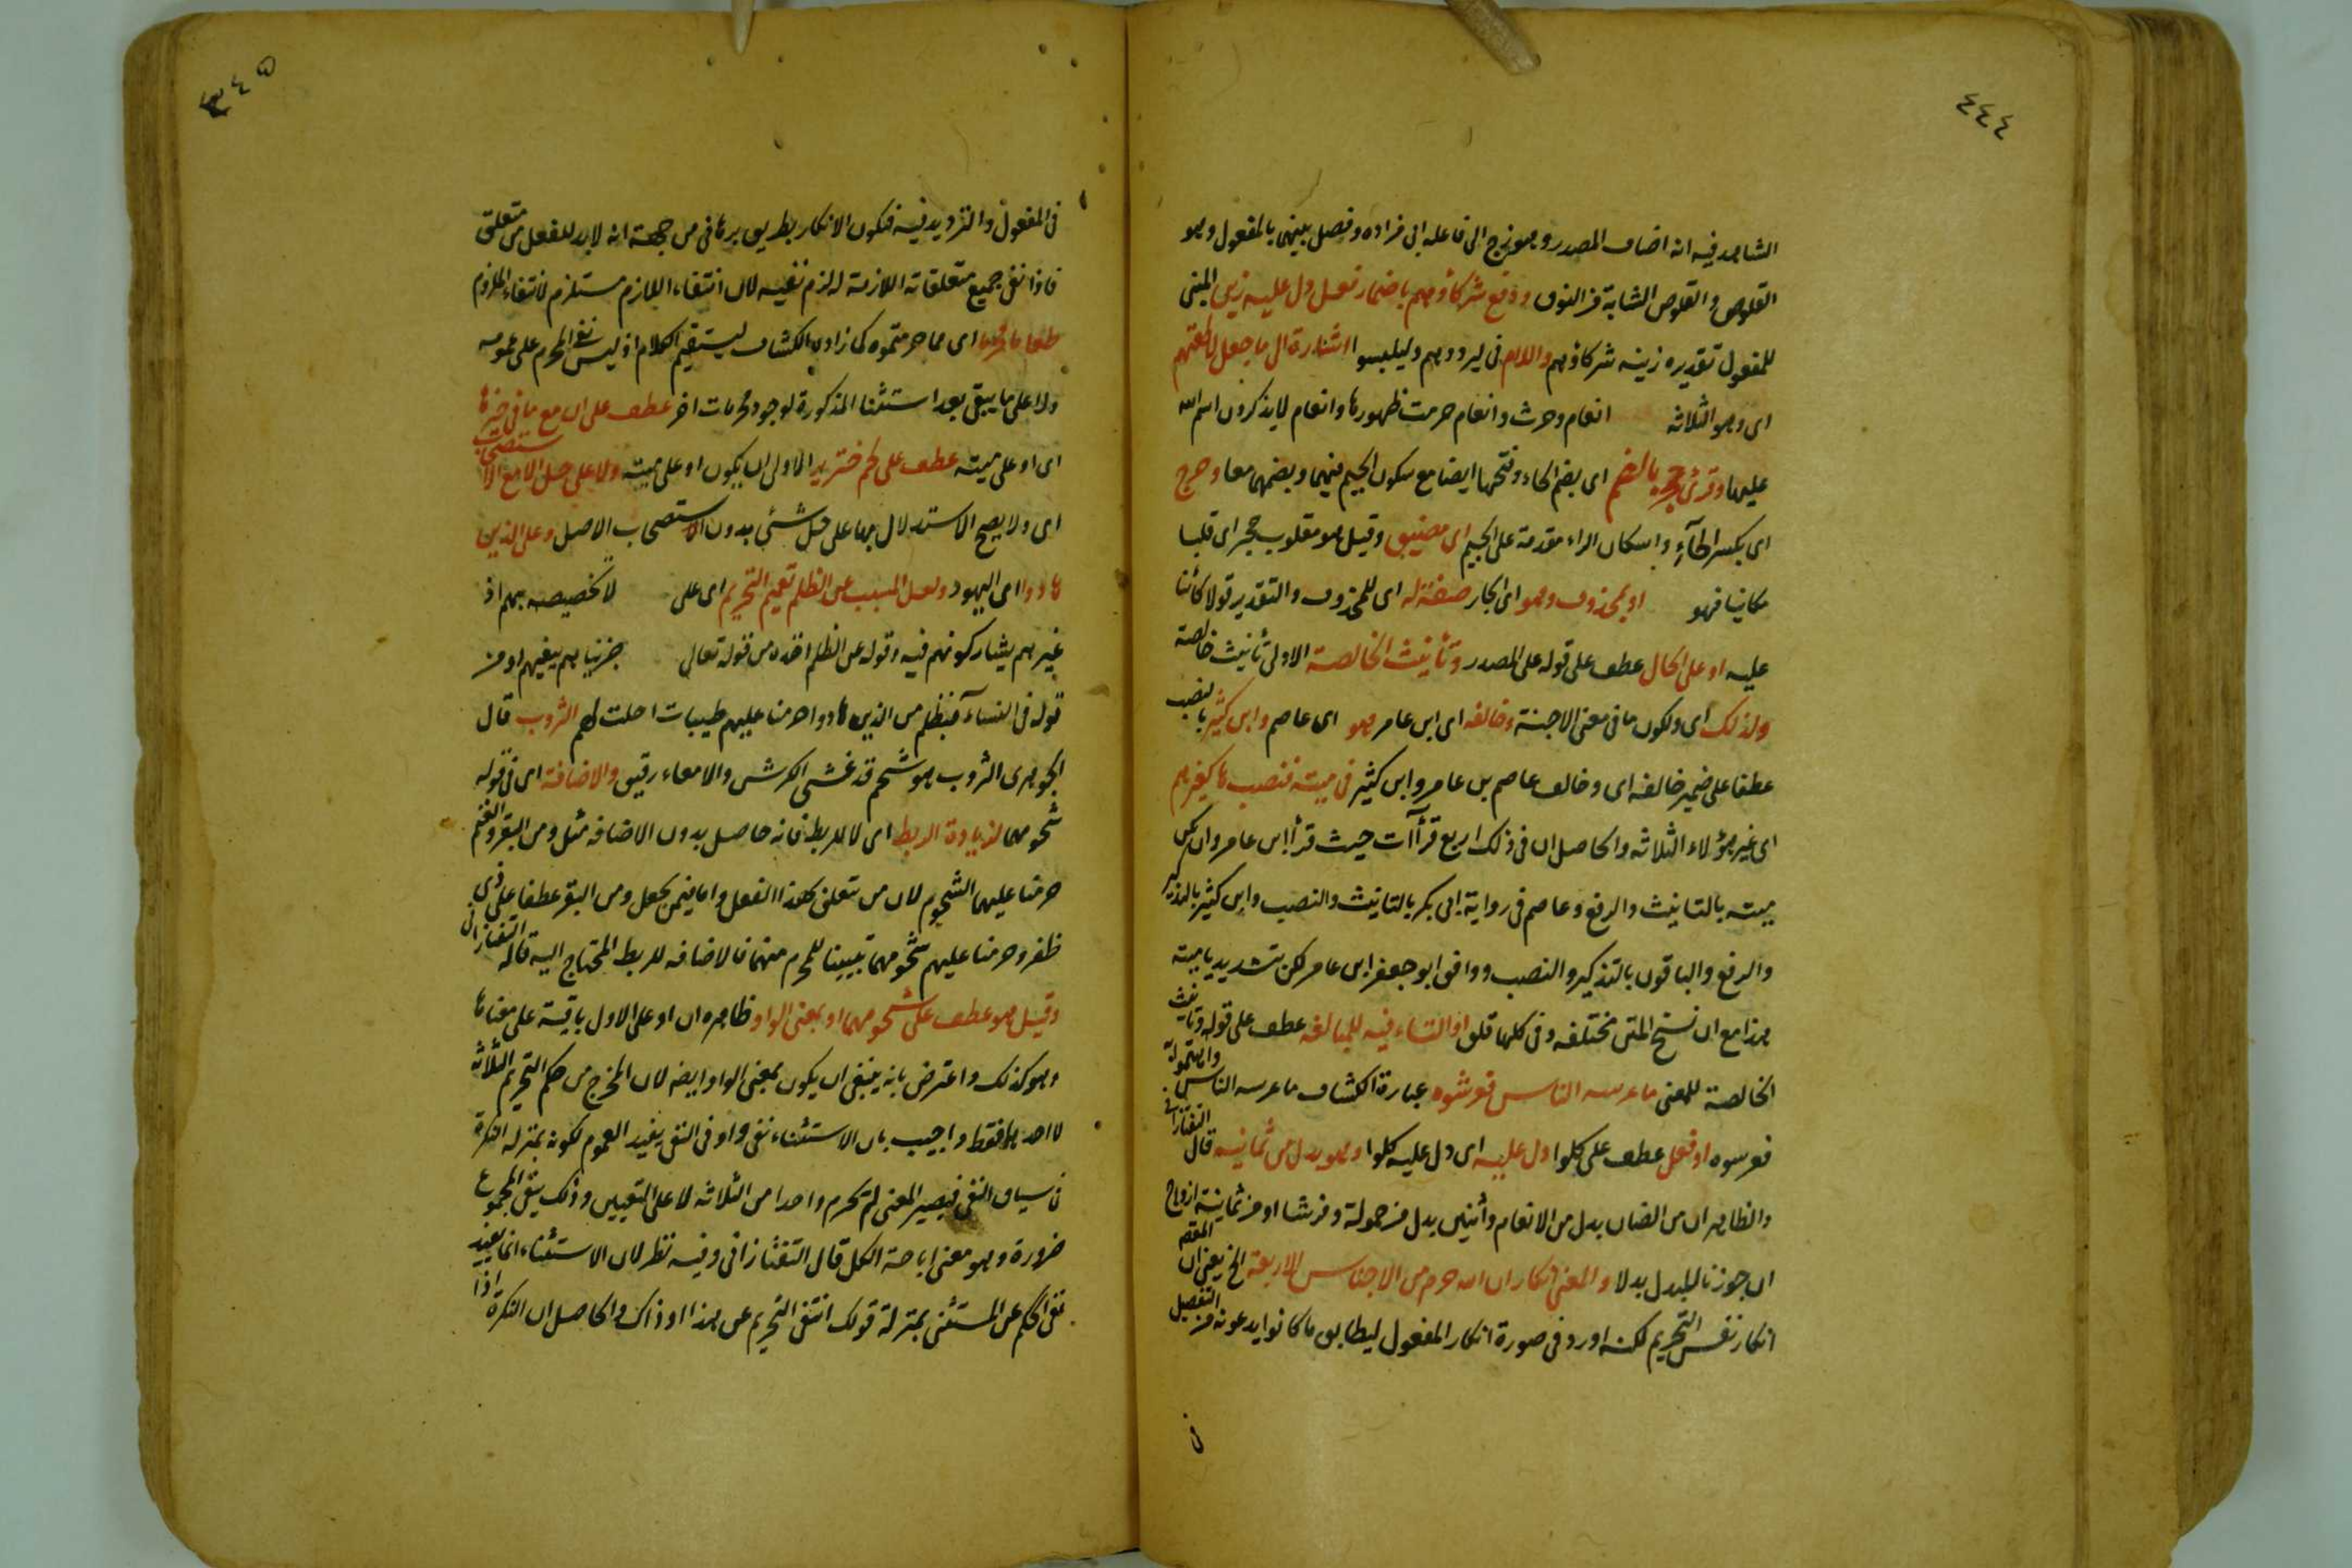 ٤٤٤
الشاهد فيه انه اضاف المصدر وهو زج الى فاعله ابى مزاده وفصل بينهما بالمفعول وهو
القلوص والقلوص الشابة من النوق ورفع شركاؤهم باضمار فعل دل عليه زين المبنى
للمفعول تقديره زينه شركاؤهم واللام فى ليردوهم وليلبسوا اشارة الى ما جعل لالهتهم
اى وهو الثلاثة انعام وحرث وانعام حرمت ظهورها وانعام لا يذكرون اسم الله
عليها وقرئ حجر بالضم اى بضم الحاء وفتحها ايضا مع سكون الجيم فيهما وبضمهما معا وحرج
اى بكسر الحآء واسكان الراء مقدمة على الجيم اى مضيق وقيل هو مقلوب حجر اى قلبا
مكانيا فهو او بمحذوف وهو اى الجار صفة له اى للمحذوف والتقدير قولا كائنا
عليه او على الحال عطف على قوله على المصدر وتأنيث الخالصة الاولى تأنيث خالصة
ولذلك اى ولكون ما فى معنى الاجنة وخالفه اى ابن عامر وهو اى عاصم وابن كثير بالنصب
عطفا على ضمير خالفه اى وخالف عاصم بن عامر وابن كثير فى ميتة فنصب ها كغيرهم
اى غير هؤلاء الثلاثة والحاصل ان فى ذلك اربع قرآآت حيث قرأ ابن عامر وان يكن
ميتة بالتانيث والرفع وعاصم فى رواية ابى بكر بالتانيث والنصب وابن كثير بالتذكير
والرفع والباقون بالتذكير والنصب ووافق ابو جعفر ابن عامر لكن بتشديد ياء ميتة
هذا مع ان نسخ المتن مختلفه وفى كلها قلق او التاء فيه للمبالغة عطف على قوله وتانيث
الخالصة للمعنى ما عرسه الناس فعرشوه عبارة الكشاف ما عرسه الناس واهتموا به
فعرسوه او فعل عطف على كلوا دل عليه اى دل عليه كلوا وهو بدل من ثمانية قال التفتازانى
والظاهر ان من الضان بدل من الانعام واثنين بدل من حمولة وفرشا او من ثمانية ازواج
ان جوزنا للبدل بدلا والمعنى انكار ان الله حرم من الاجناس الاربعة الخ يعنى ان المقصود
انكار نفس التحريم لكنه اورد فى صورة انكار المفعول ليطابق ما كانوا يدعونه من التفصيل
فى
فى المفعول والترديد فيه فيكون الانكار بطريق برهانى من جهة انه لا بد للفعل من متعلق
فاذا نفى جميع متعلقاته اللازمة له لزم نفيه لان انتفاء اللازم مستلزم لانتفاء الملزوم
طعاما محرما اى مما حرمتموه كما زاده الكشاف ليستقيم الكلام اذ ليس نفى المحرم على عمومه
ولا على ما يبقى بعد استثنا المذكورة لوجود محرمات اخر عطف على ان مع ما فى حيزها
اى او على ميتة عطف على لحم خنزير الاولى ان يكون او على ميتة ولا على حل الا مع الاستصحاب
اى ولا يصح الاستدلال بها على حل شئ بدون الاستصحاب الاصل وعلى الذين
هادوا اى اليهود ولعل المسبب عن الظلم تعميم التحريم اى على لا تخصيصه بهم اذ
غيرهم يشاركونهم فيه وقوله عن الظلم اخذه من قوله تعالى جزيناهم ببغيهم او من
قوله فى النساء فبظلم من الذين هادوا حرمنا عليهم طيبات احلت لهم الثروب قال
الجوهرى الثروب هو شحم قد غشى الكرش والامعاء رقيق والاضافة اى فى قوله
شحومهما لزيادة الربط اى لا للربط فانه حاصل بدون الاضافه مثل ومن البقر والغنم
حرمنا عليهما الشحوم لان من تتعلق كهذا الفعل واما فيمن يجعل ومن البقر عطفا على ذى
ظفر وحرمنا عليهم شحومهما تبيينا للمحرم منهما فالاضافه للربط المحتاج اليه قاله التفتازانى
وقيل هو عطف على شحومهما او بمعنى الواو ظاهره ان او على الاول باقية على معناها
وهو كذلك واعترض بانه ينبغى ان يكون بمعنى الواو ايضه لان المخرج من حكم التحريم الثلاثة
لا احدها فقط واجيب بان الاستثناء نفى واو فى النفى يفيد العموم لكونه بمنزله النكرة
فى سياق النفى فيصير المعنى لم يحرم واحدا من الثلاثه لا على التعيين وذلك ينفى المجموع
ضرورة وهو معنى اباحة الكل قال التفتازانى وفيه نظر لان الاستثناء انما يفيد
نفى الحكم عن المستثنى بمنزلة قولك انتفى التحريم عن هذا او ذاك والحاصل ان النكرة اذا